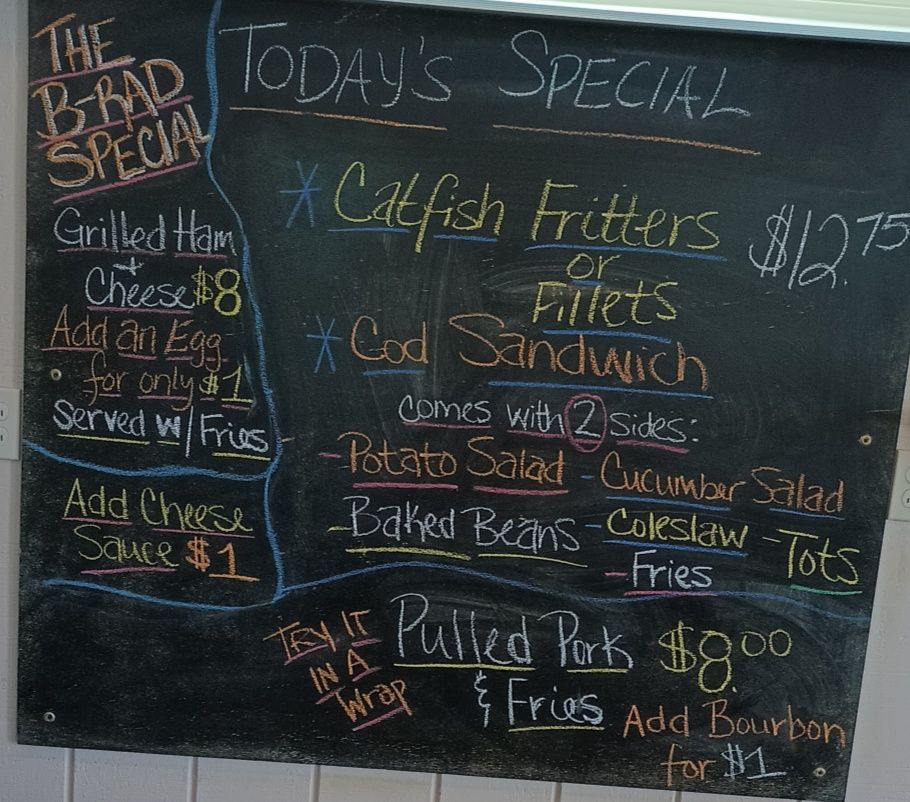 THE
B-RAD
SPECIAL
Grilled Ham
+
Cheese $8
Add an Egg
for only $1
Served w/Fries
Add Cheese
Sauce $1
TODAY'S SPECIAL
* Catfish Fritters $12.75
or
Fillets
* Cod Sandwich
comes with 2 sides:
- Potato Salad - Cucumber Salad
- Baked Beans - Coleslaw - Tots
- Fries
TRY IT
IN A
Wrap
Pulled Pork $8.00
& Fries
Add Bourbon
for $1